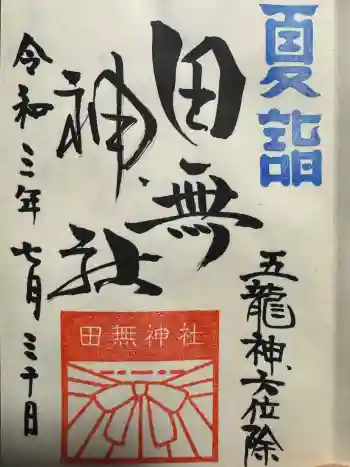 夏詣
五龍神方位除
田無
神社
田無神社
令和三年七月三十日